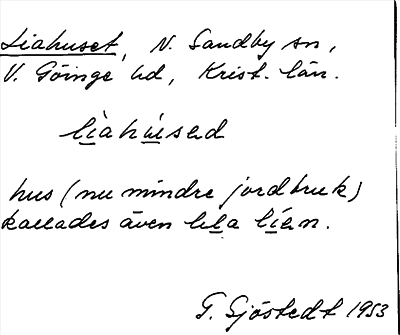 Liahuset, N. Sandby sn,
V. Göinge hd, Krist. län.
lìahúsed
hus (nu mindre jordbruk)
kallades även lilla lían.
G. Sjöstedt 1953